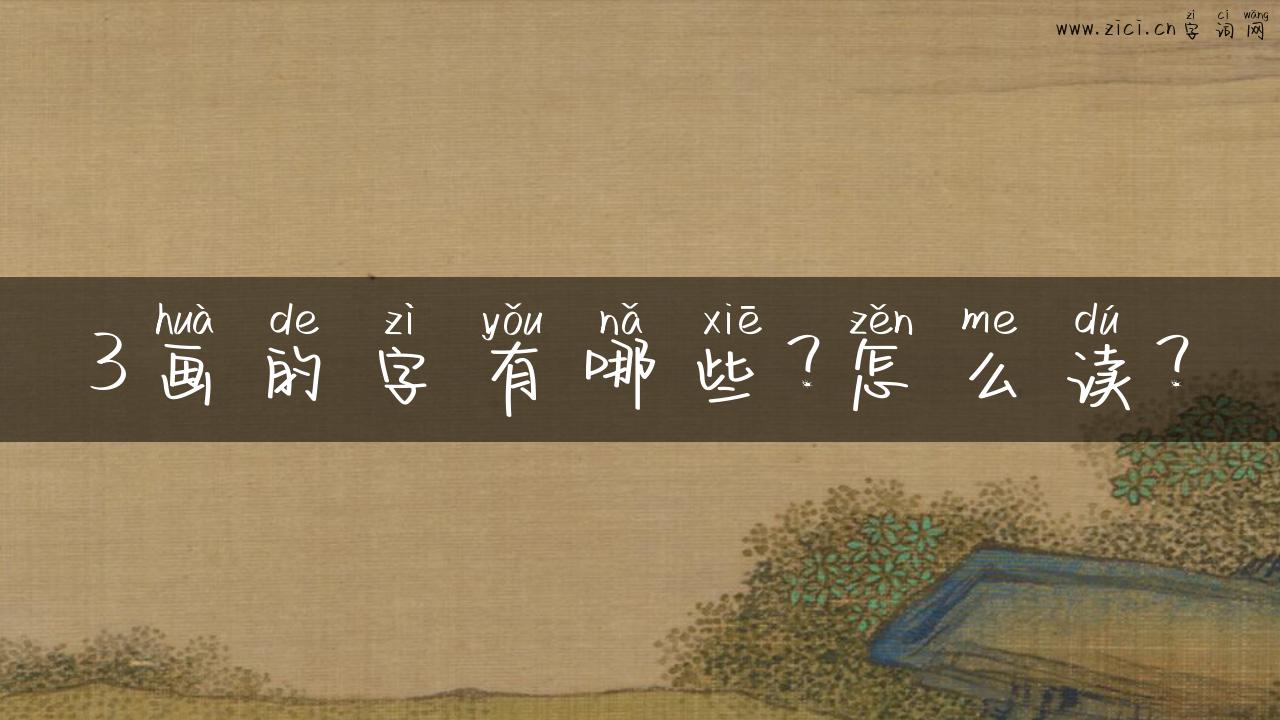 zì cí wǎng
www.zici.cn字词网
huà de zì yǒu nǎ xiē zěn me dú
3画的字有哪些?怎么读?